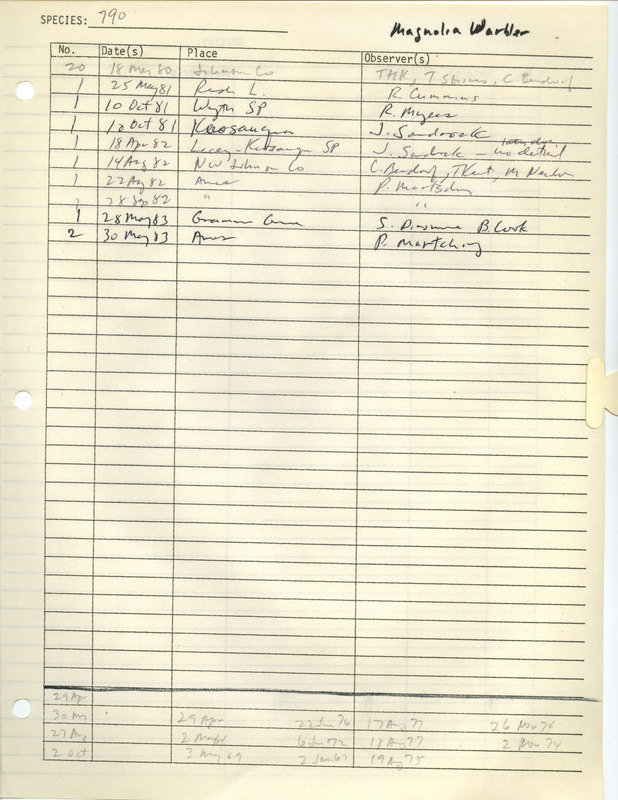 SPECIES: 790
Magnolia Warbler
No. Date(s) Place Observer(s)
20 18 May 80 Johnson Co THK, T Shires, C Bendorf
1 25 May 81 Rush L. R. Cummins
1 10 Oct 81 Wyth SP R. Myers
1 10 Oct 81 Keosauqua J. Sandrock
1 18 Apr 82 Lacey-Keosauqua SP J. Sandrock - no detail
1 14 Aug 82 NW Johnson Co C. Bendorf, TKent, M Newlon
1 22 Aug 82 Ames P. Martsching
28 Sep 82 " "
1 28 May 83 S. Dinsmore B. Cook
2 30 May 83 Ames P. Martsching
29 Apr
30 May 29 Apr 22 Jun 76 17 Aug 77 26 Nov 74
27 Aug 2 May 6 Jun 72 18 Aug 77 2 Nov 74
2 Oct 3 May 69 2 Jun 67 19 Aug 75